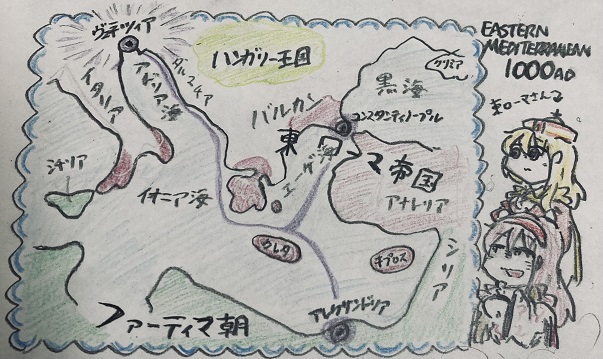 EASTERN
MEDITERRANEAN
1000AD
東ローマさん
ヴェネツィア
ハンガリー王国
クリミア
黒海
イタリア
アドリア海
ダルマチア
バルカン
コンスタンティノープル
東ローマ帝国
エーゲ海
アナトリア
シチリア
イオニア海
クレタ
キプロス
シリア
アレクサンドリア
ファーティマ朝